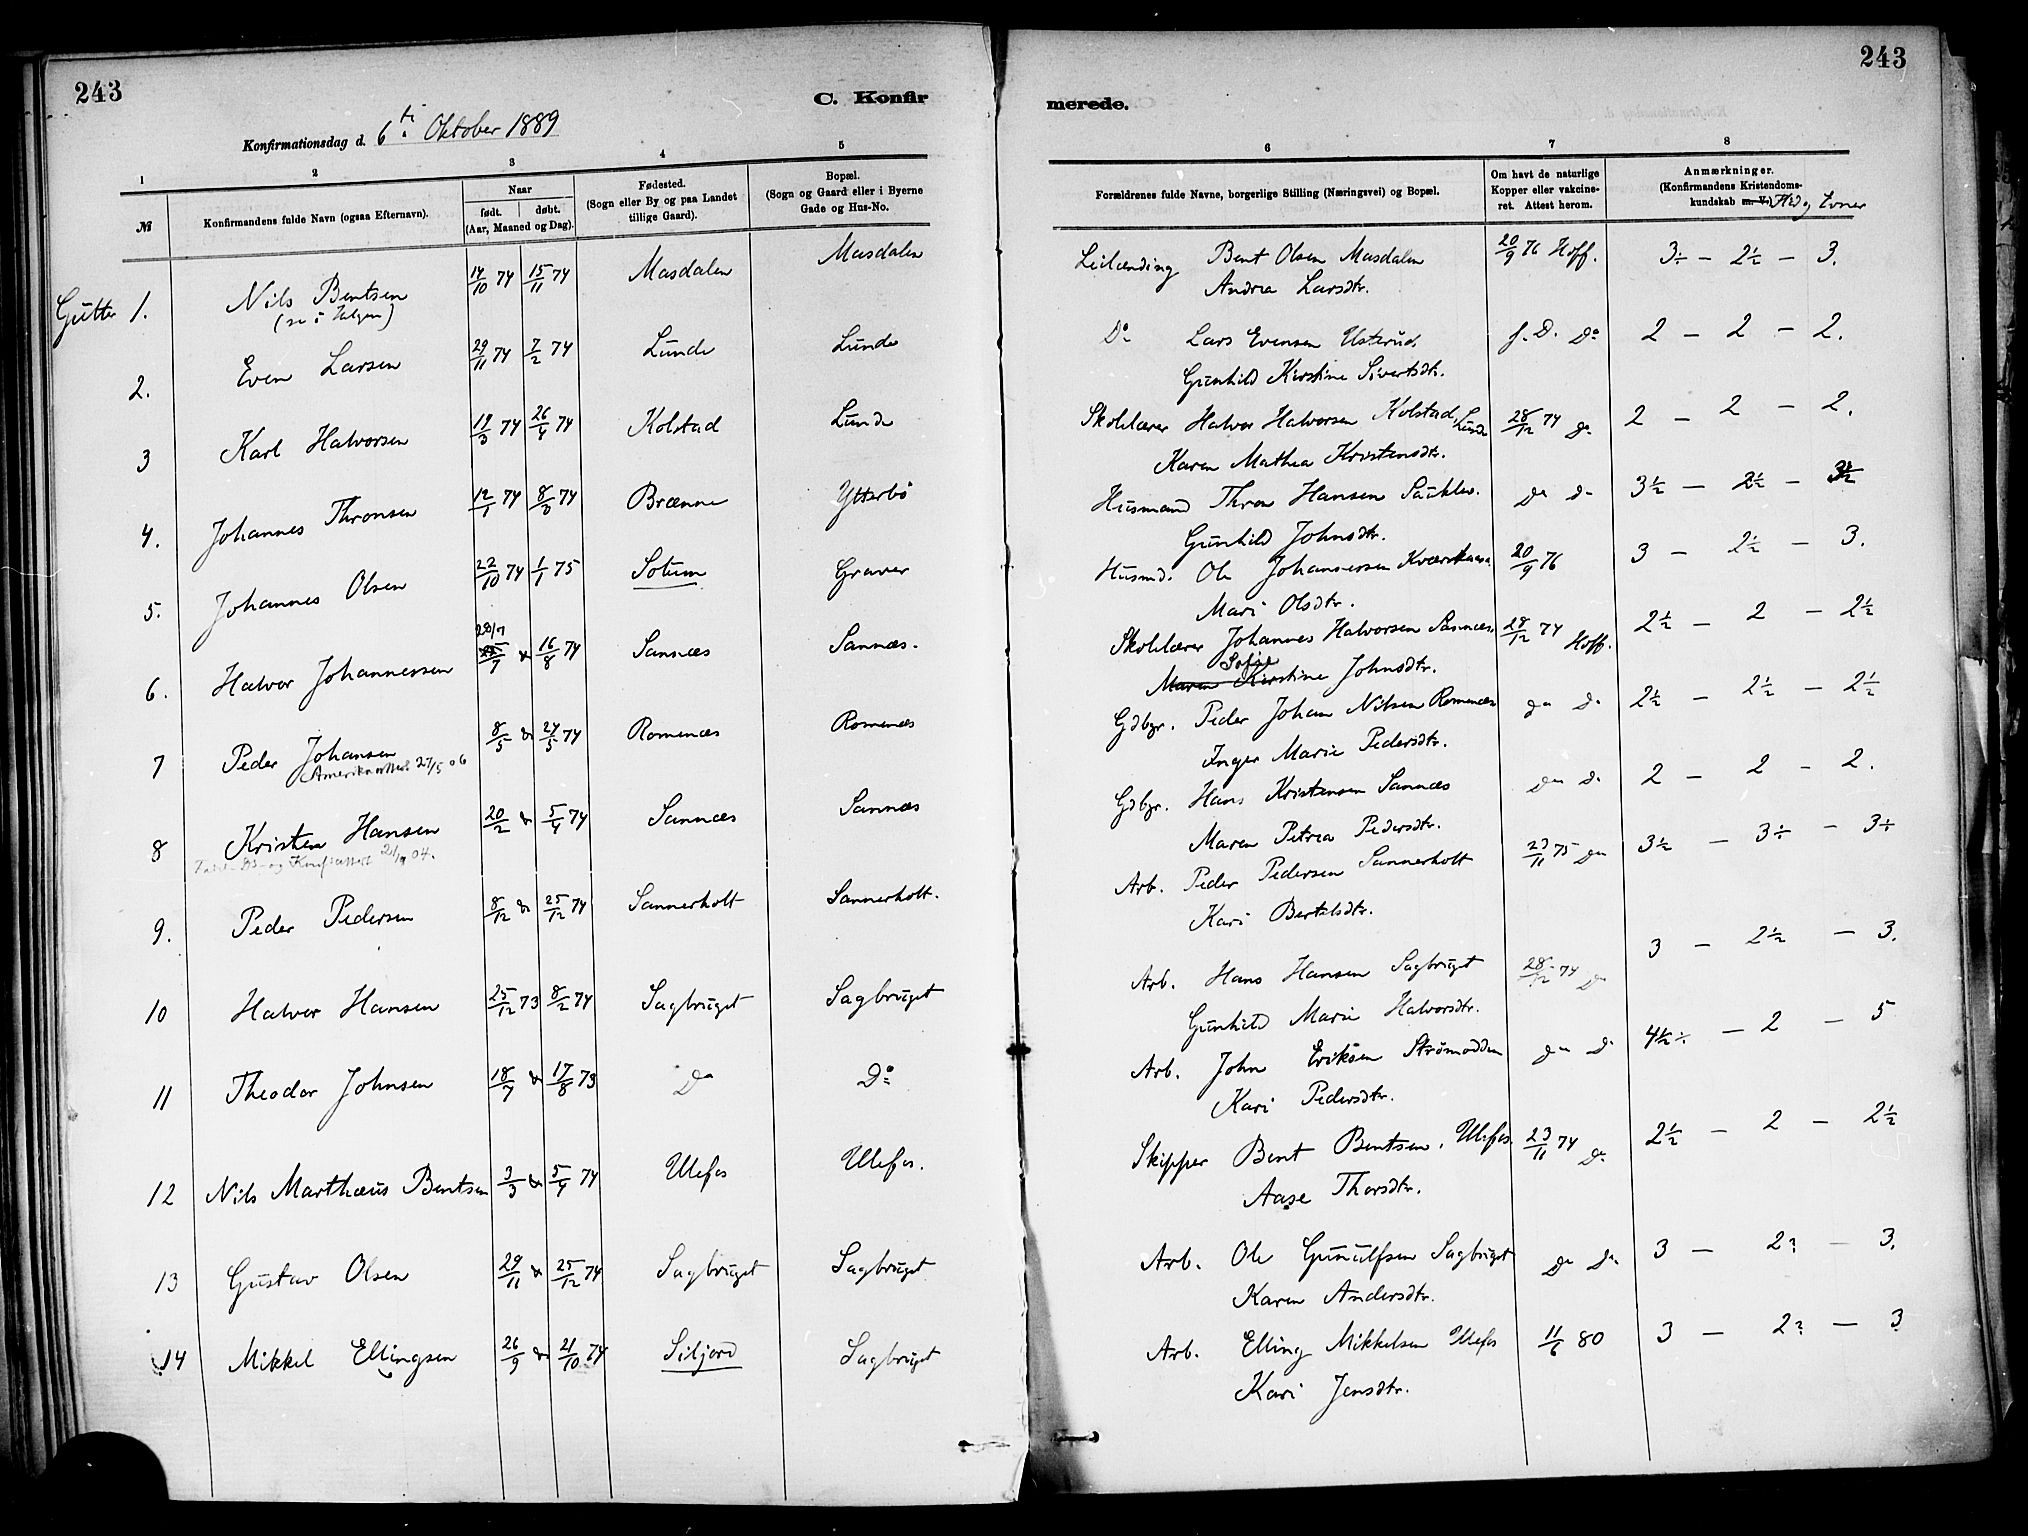 243
C. Konfir
Konfirmationsdag d. 6ti Oktober 1889
1 2 3 4 5
№
Konfirmandens fulde Navn (ogsaa Efternavn).
Naar
født. døbt.
(Aar, Maaned og Dag).
Fødested.
(Sogn eller By og paa Landet
tillige Gaard).
Bopæl.
(Sogn og Gaard eller i Byerne
Gade og Hus-No.
Gutter 1. Nils Bentsen 14/10 74 15/11 74 Masdalen Masdalen
2. Even Larsen 29/11 74 7/2 74 Lunde Lunde
3 Karl Halvorsen 19/3 74 26/4 74 Kolstad Lunde
4. Johannes Thronsen 12/1 74 8/3 74 Brænne Ytterbö
5. Johannes Olsen 22/10 74 1/1 75 Sotum Graver
28/7
6. Halvor Johannessen 16/8 74 Sannæs Sannæs.
7 Peder Johansen 8/5 24/5 74 Romenæs Romenæs
Amerikaattest 27/5 06
8 Kristen Hansen 20/2 5/4 74 Sannæs Sannæs
9. Peder Pedersen 8/12 25/12 74 Sannerholt Sannerholt.
10 Halvor Hansen 25/12 73 8/2 74 Sagbruget Sagbruget
11 Theodor Johnsen 18/7 17/8 73 Do Do
12 Nils Marthæus Bentsen 3/3 5/4 74 Ulefos Ulefos.
13 Gustav Olsen 29/11 25/12 74 Sagbruget Sagbruget
14 Mikkel Ellingsen 26/9 21/10 74 Siljord Sagbruget
243
merede.
6 7 8
Forældrenes fulde Navne, borgerlige Stilling (Næringsvei) og Bopæl.
Om havt de naturlige
Kopper eller vakcine-
ret. Attest herom.
Anmærkninger.
(Konfirmandens Kristendoms-
kundskab m. V.) Flid og Evner
Leilænding Bent Olsen Masdalen 20/9 76 Hoff. 3÷ – 2½ – 3.
Andrea Larsdtr.
Do Lars Evensen Usterud f. D. Do 2 – 2 – 2.
Gunhild Kirstine Sivertsdtr.
Skolelærer Halvor Halvorsen Kolstad, Lunde 28/12 74 Do 2 – 2 – 2.
Karen Mathea Kristensdtr.
Husmand Thron Hansen Do Do 3½ – 2½ – 3½
Gunhild Johnsdtr.
Husmd. Ole Johannessen 20/9 76 3 – 2½ – 3.
Mari Olsdtr.
Skolelærer Johannes Halvorsen Sannæs 28/12 74 Hoff. 2½ – 2 – 2½
Sofie
Maren Kirstine Johnsdtr.
Gdbgr. Peder Johan Nilsen Romenæs Do Do 2½ – 2½ – 2½
Inger Marie Pedersdtr.
Gdbgr. Hans Kristensen Sannæs Do Do 2 – 2 – 2.
Maren Petrea Pedersdtr.
Arb. Peder Pedersen Sannerholt 23/11 75 Do 3½ – 3÷ – 3÷
Kari Bertelsdtr.
Arb. Hans Hansen Sagbruget 28/12 74 Do 3 – 2½ – 3.
Gunhild Marie Halvorsdtr.
Arb. John Eriksen Strømodden Do Do 4½÷ – 2 – 5
Kari Pedersdtr.
Skipper Bent Bentsen, Ulefos. 23/11 74 Do 2½ – 2 – 2½
Aase Thorsdtr.
Arb. Ole Gunulfsen Sagbruget Do Do 3 – 2? – 3.
Karen Andersdtr.
Arb. Elling Mikkelsen Ulefos 11/6 80 3 – 2? – 3
Kari Jensdtr.